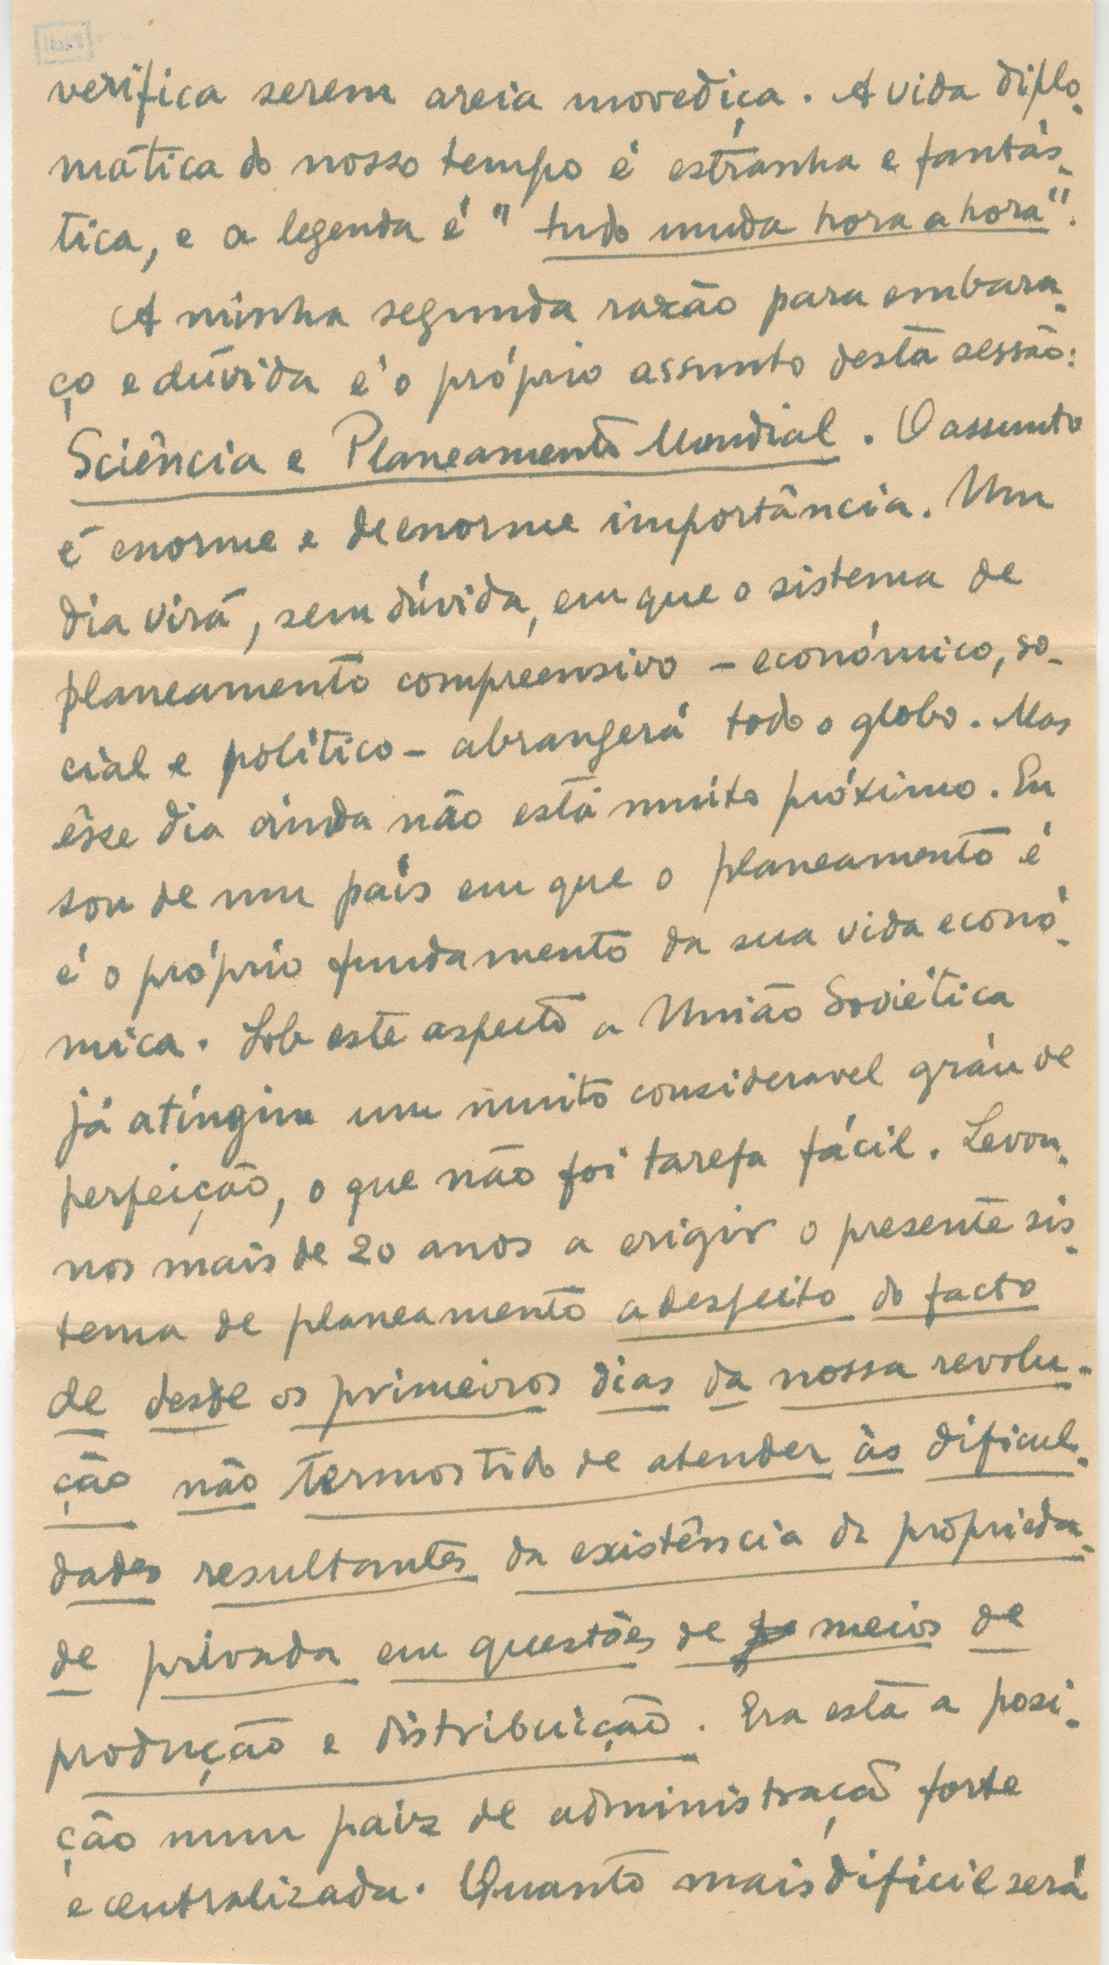 verifica serem areia movediça. A vida diplo-
mática do nosso tempo é estranha e fantás-
tica, e a legenda é "tudo muda hora a hora".
A minha segunda razão para embara-
ço e dúvida é o próprio assunto desta sessão:
Sciência e Planeamento Mundial. O assunto
é enorme e de enorme importância. Um
dia virá, sem dúvida, em que o sistema de
planeamento compreensivo – económico, so-
cial e político – abrangerá todo o globo. Mas
êsse dia ainda não está muito próximo. Eu
sou de um país em que o planeamento é
é o próprio fundamento da sua vida econó-
mica. Sob este aspecto a União Soviética
já atingiu um muito consideravel gráu de
perfeição, o que não foi tarefa fácil. Levou-
nos mais de 20 anos a erigir o presente sis-
tema de planeamento a despeito do facto
de desde os primeiros dias da nossa revolu-
ção não termos tido de atender às dificul-
dades resultantes da existência da proprieda-
de privada em questões de meios de
produção e distribuição. Era esta a posi-
ção num paiz de administração forte
e centralizada. Quanto mais dificil será